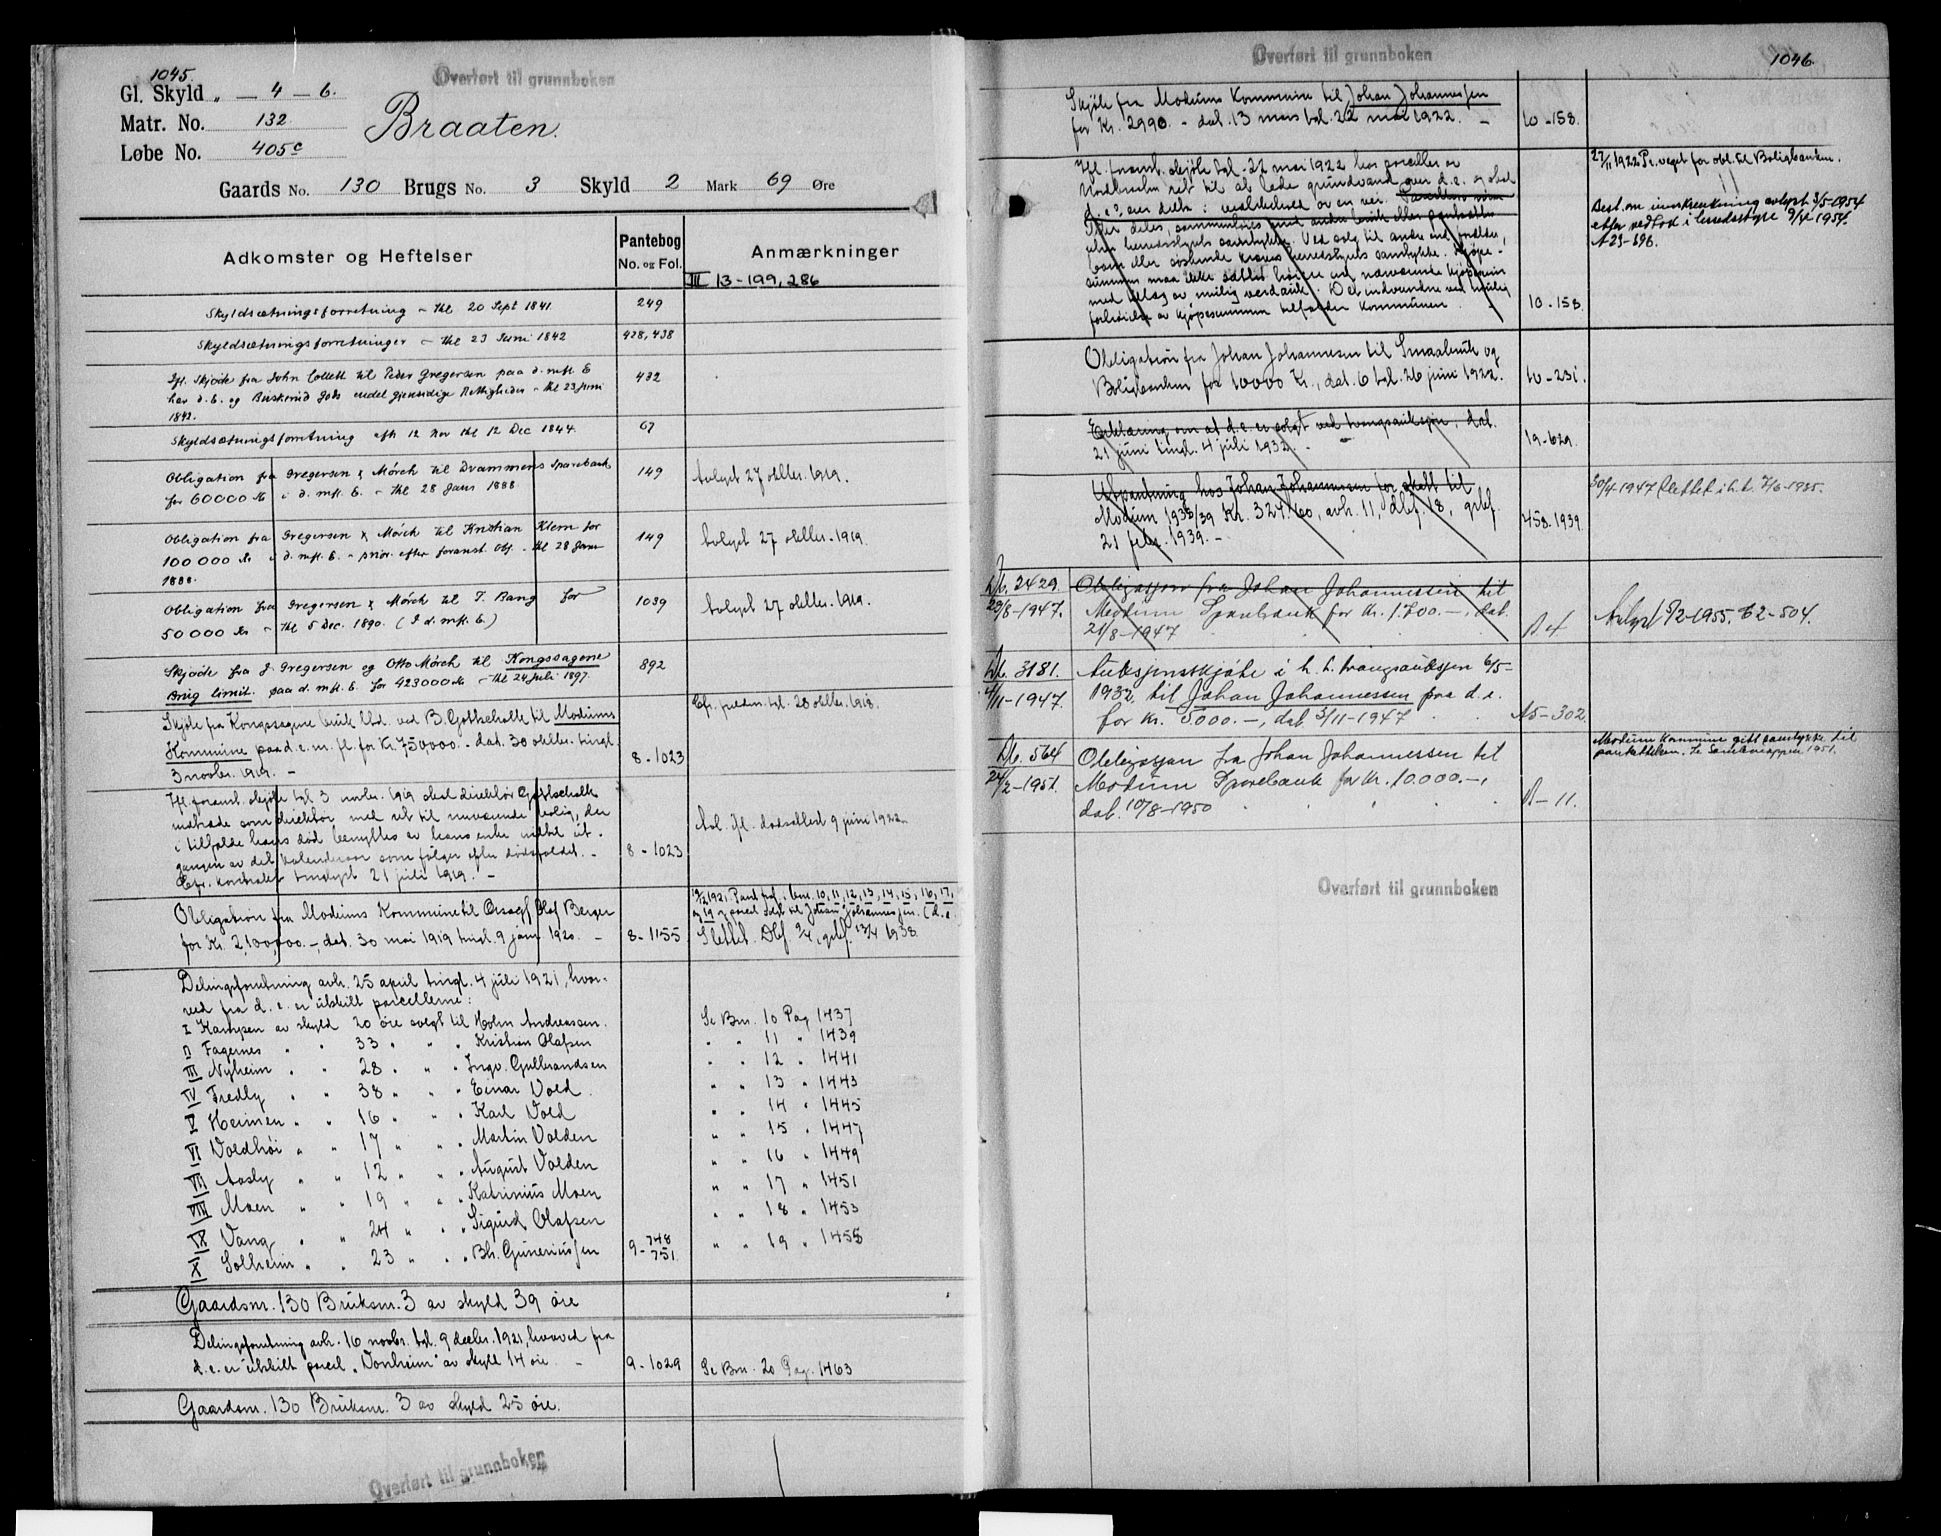 1045.
Overført til grunnboken
Gl. Skyld „ — 4 — 6.
Matr. No. 132
Braaten.
Løbe No. 405c
Gaards No. 130 Brugs No. 3 Skyld 2 Mark 69 Øre
Adkomster og Heftelser
Pantebog No. og Fol.
Anmærkninger
III 13-199, 286
Skyldsætningsforretning - thl 20 Sept 1841
249
Skyldsætningsforretninger - thl 23 Juni 1842
428, 438
Ifl. Skjøde fra John Collett til Peder Gregersen paa d. mfl. E
432
har d. E. og Buskerud Gods endel gjensidige Rettigheder - thl 23 Juni
1842.
Skyldsætningsforretning afh 12 Nov thl 12 Dec 1844.
67
Obligation fra Gregersen & Mörch til Drammens Sparebank
149
Avlyst 27 oktbr. 1919.
for 60000 Kr i d. mfl. E. - thl 28 Janr 1888
Obligation fra Gregersen & Mörch til Kristian Klem for
149
Avlyst 27 oktbr. 1919.
100 000 Kr i d. mfl. E. - prior. efter foranst. Obl. - thl 28 Janr
1888.
Obligation fra Gregersen & Mörch til T. Bang for
1039
Avlyst 27 oktbr. 1919.
50 000 Kr - thl 5 Dec. 1890. (I d. mfl. E.)
Skjøde fra J. Gregersen og Otto Mörch til Kongssagene
892
Brug limit. paa d. mfl. E. for 423000 Kr - thl 24 Juli 1897.
Cfr. fuldm. tgl. 28 oktbr. 1918.
Skjøte fra Kongssagene bruk Ltd. ved B. Gottschalk til Modums
Kommune paa d. e. m. fl. for Kr. 750000. - dat. 30 oktbr. tingl.
8 - 1023
3 novbr. 1919. -
Ifl. foranst. skjøte tgl 3 novbr. 1919 skal direktør Gottschalk
indtræde som direktør med ret til nuværende bolig, der
Avl. ifl. dødsattest 9 juni 1922
i tilfælde hans død benyttes av hans enke indtil ut-
gangen av det kalenderaar som følger efter dødsfaldet. -
8 - 1023
Cfr. kontrakt tinglyst 21 juli 1919. -
Obligation fra Modums Kommune til Orsagf. Olaf Berger
for Kr. 2,100,000. -, dat. 30 mai 1919 tingl. 9 janr 1920. -
8 - 1155
Slettet. Dbf. 9/4, grbf. 13/4 1938.
Delingsforretning avh. 25 april tingl. 4 juli 1921, hvor-
ved fra d. e. er utskilt parcellerne:
I Kampen av skyld 20 øre solgt til Holm Andreassen.
Se Bnr. 10 Pag 1437
II Fagernes " " 33 " " " Kristian Olafsen
" " 11 " 1439
III Nyheim " " 28 " " " Ingv. Gulbrandsen
" " 12 " 1441
IV Fredly " " 38 " " " Einar Vold
" " 13 " 1443
V Heimen " " 16 " " " Karl Vold
" " 14 " 1445
VI Voldhøi " " 17 " " " Martin Volden
" " 15 " 1447
VII Aasly " " 12 " " " August Volden
" " 16 " 1449
VIII Moen " " 19 " " " Katrinius Moen
" " 17 " 1451
IX Vang " " 24 " " " Sigurd Olafsen
" " 18 " 1453
X Solheim " " 23 " " " Bh. Guneriussen
9 - 748 751.
" " 19 " 1455
Gaardsnr. 130 Bruksnr. 3 av skyld 39 øre
Delingsforretning avh. 16 novbr. tgl. 9 decbr. 1921, hvorved fra
d. e. er utskilt parcel „Vonheim" av skyld 14 øre -
9 - 1029
Se Bnr. 20 Pag. 1463
Gaardsnr. 130 Bruksnr. 3 av skyld 25 øre.
Overført til grunnboken
Overført til grunnboken
1046
Skjøte fra Modums Kommune til Johan Johannessen
for Kr. 2990. - dat. 13 mars tgl. 22 mai 1922. -
10 - 158.
Ifl. foranst. skjøte tgl. 22 mai 1922 har parceller av
27/11 1922 Pr. veget for obl. til Boligbanken.
ret til at lede grundvand over d. e. og skal
Best. om innskrenkning avlyst 3/5-1954
etter vedtak i herredsstyre 9/4 1954.
A 23-696.
eller herredsstyrets samtykke. Ved salg til andre end forældre,
barn eller søskende kræves herredsstyrets samtykke. Kjøpe-
summen maa ikke sættes høiere end nærværende kjøpesum
10 - 158.
forhøielse av kjøpesummen tilfalder Kommunen
Obligation fra Johan Johannessen til Smaabruk og
Boligbanken for 10000 Kr., dat. 6 tgl. 26 juni 1922.
10 - 231.
Erklæring om at d. e. er solgt ved tvangsauksjon, dat.
21 juni tingl. 4 juli 1932. -
19 - 629.
Utpantning hos Johan Johannessen for skatt til
30/4-1947 slettet i h. t.
Modum 1938/39 Kr. 327.60, avh. 11, dbf. 18, grbf.
458. 1939.
21 febr. 1939. -
Db. 2429
Obligasjon fra Johan Johannessen til
29/8-1947.
Modum Sparebank for kr. 1700. -, dat.
21/8-1947
Avlyst 5/2-1955. B2-504.
Db. 3181.
Auksjonsskjøte i h. t. tvangsauksjon 6/5-
4/11-1947.
1932 til Johan Johannessen paa d. e.
for kr. 5000. -, dat. 3/11-1947
A5 - 302.
Db. 564
Obligasjon fra Johan Johannessen til
Modum kommune gitt samtykke til
pantettelsen. Se 1951.
24/2-1951.
Modum Sparebank for kr. 10.000. -,
dat. 10/8-1950
A - 11.
Overført til grunnboken